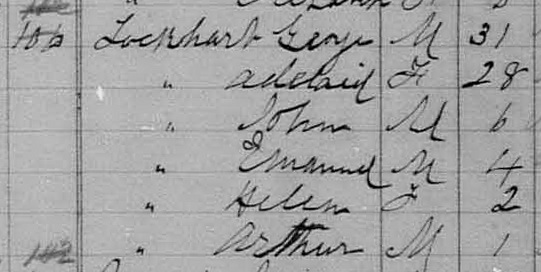 106 Lockhart George M 31
" Adelaid F 28
" John M 6
" Emanuel M 4
" Helen F 2
" Arthur M 1